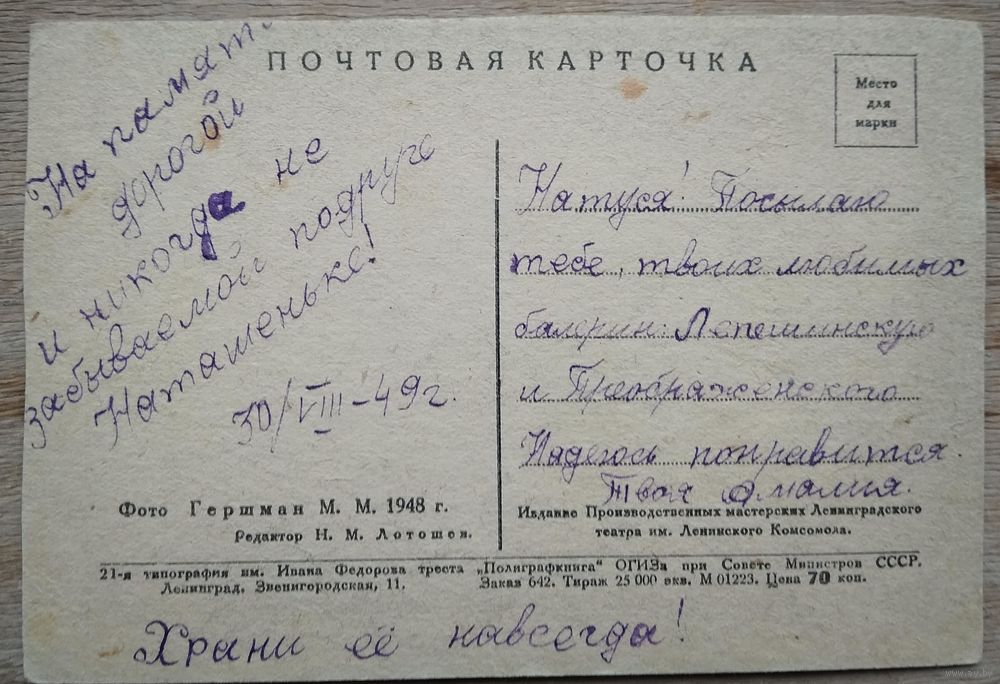 ПОЧТОВАЯ КАРТОЧКА
Место
для
марки
На памят.
дорогой
и никогда не
забываемой подруге
Наташеньке!
30/VIII-49г.
Натуся! Посылаю
тебе, твоих любимых
балерин: Лепешинскую
и Преображенского
Надеюсь понравится.
Твоя Амалия.
Фото Гершман М. М. 1948 г.
Редактор Н. М. Лотошев.
Издание Производственных мастерских Ленинградского
театра им. Ленинского Комсомола.
21-я типография им. Ивана Федорова треста „Полиграфкнига" ОГИЗа при Совете Министров СССР.
Ленинград, Звенигородская, 11. Заказ 642. Тираж 25 000 экв. М 01223. Цена 70 коп.
Храни её навсегда!